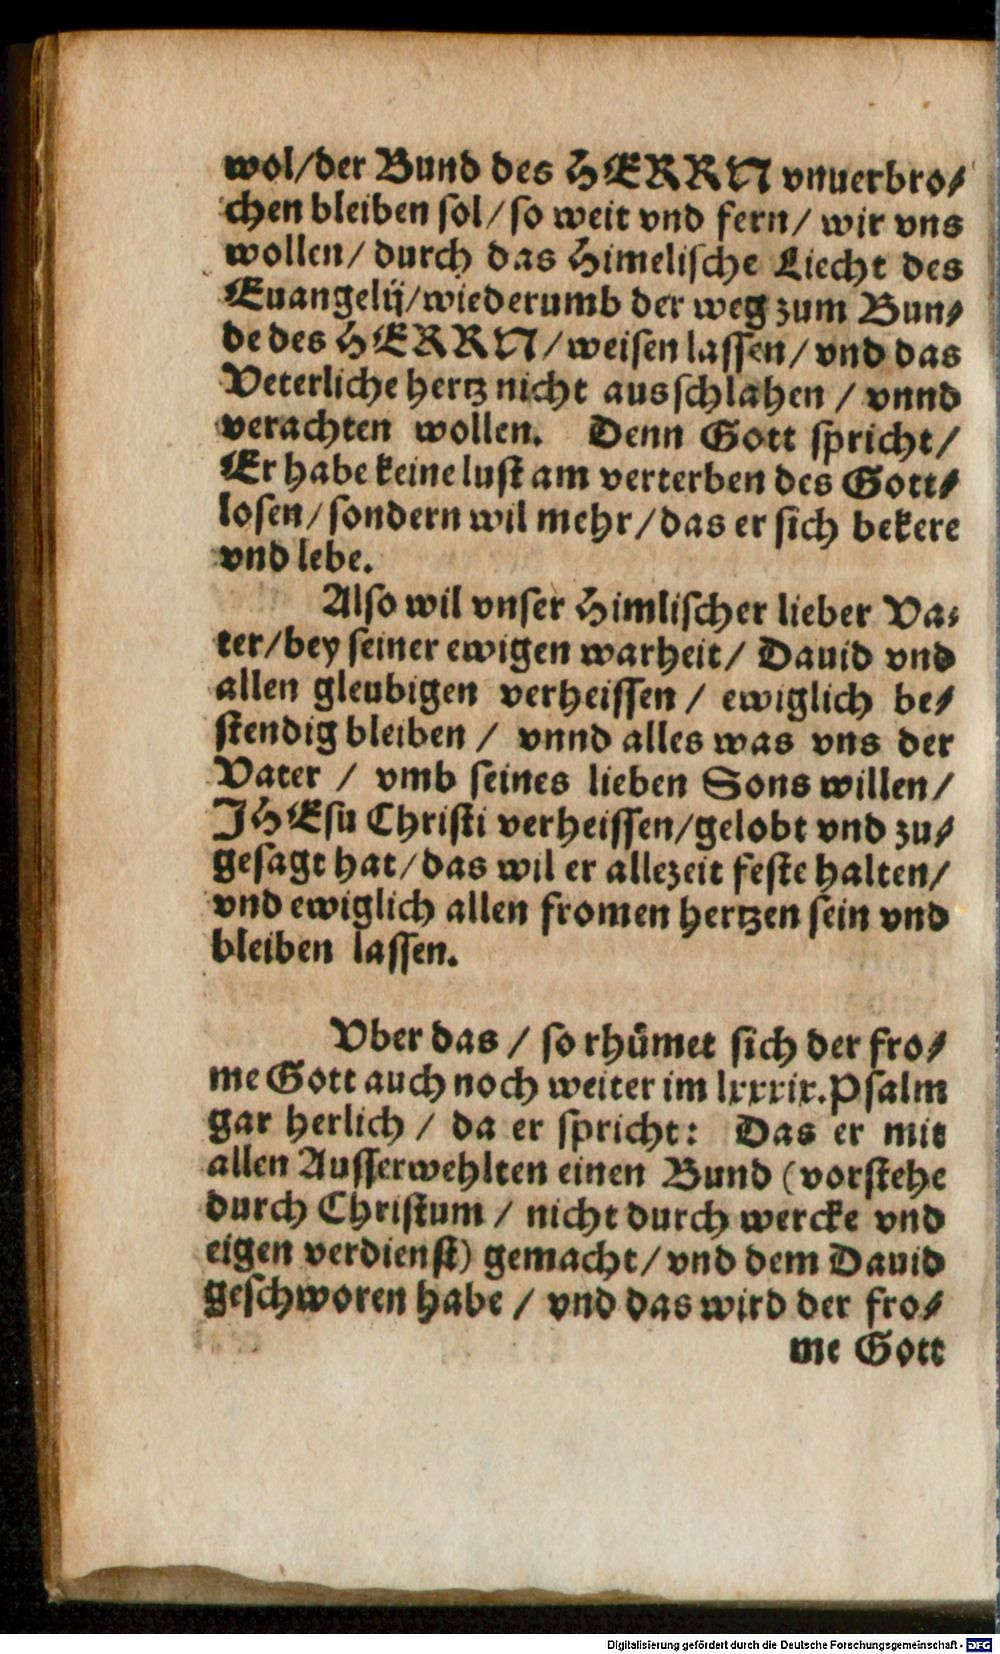 wol/der Bund des HERRN vnuerbro⸗
chen bleiben sol/so weit vnd fern/ wir vns
wollen/ durch das Himelische Liecht des
Euangelij/wiederumb der weg zum Bun⸗
de des HERRN/weisen lassen/vnd das
Veterliche hertz nicht ausschlahen / vnnd
verachten wollen. Denn Gott spricht/
Er habe keine lust am verterben des Gott⸗
losen/sondern wil mehr/das er sich bekere
vnd lebe.
Also wil vnser Himlischer lieber Va⸗
ter/bey seiner ewigen warheit/ Dauid vnd
allen gleubigen verheissen / ewiglich be⸗
stendig bleiben / vnnd alles was vns der
Vater / vmb seines lieben Sons willen/
JHEsu Christi verheissen/gelobt vnd zu⸗
gesagt hat/das wil er allezeit feste halten/
vnd ewiglich allen fromen hertzen sein vnd
bleiben lassen.
Vber das / so rhuͤmet sich der fro⸗
me Gott auch noch weiter im lxxxix.Psalm
gar herlich / da er spricht: Das er mit
allen Ausserwehlten einen Bund (vorstehe
durch Christum / nicht durch wercke vnd
eigen verdienst) gemacht/vnd dem Dauid
geschworen habe / vnd das wird der fro⸗
me Gott
Digitalisierung gefördert durch die Deutsche Forschungsgemeinschaft - DFG